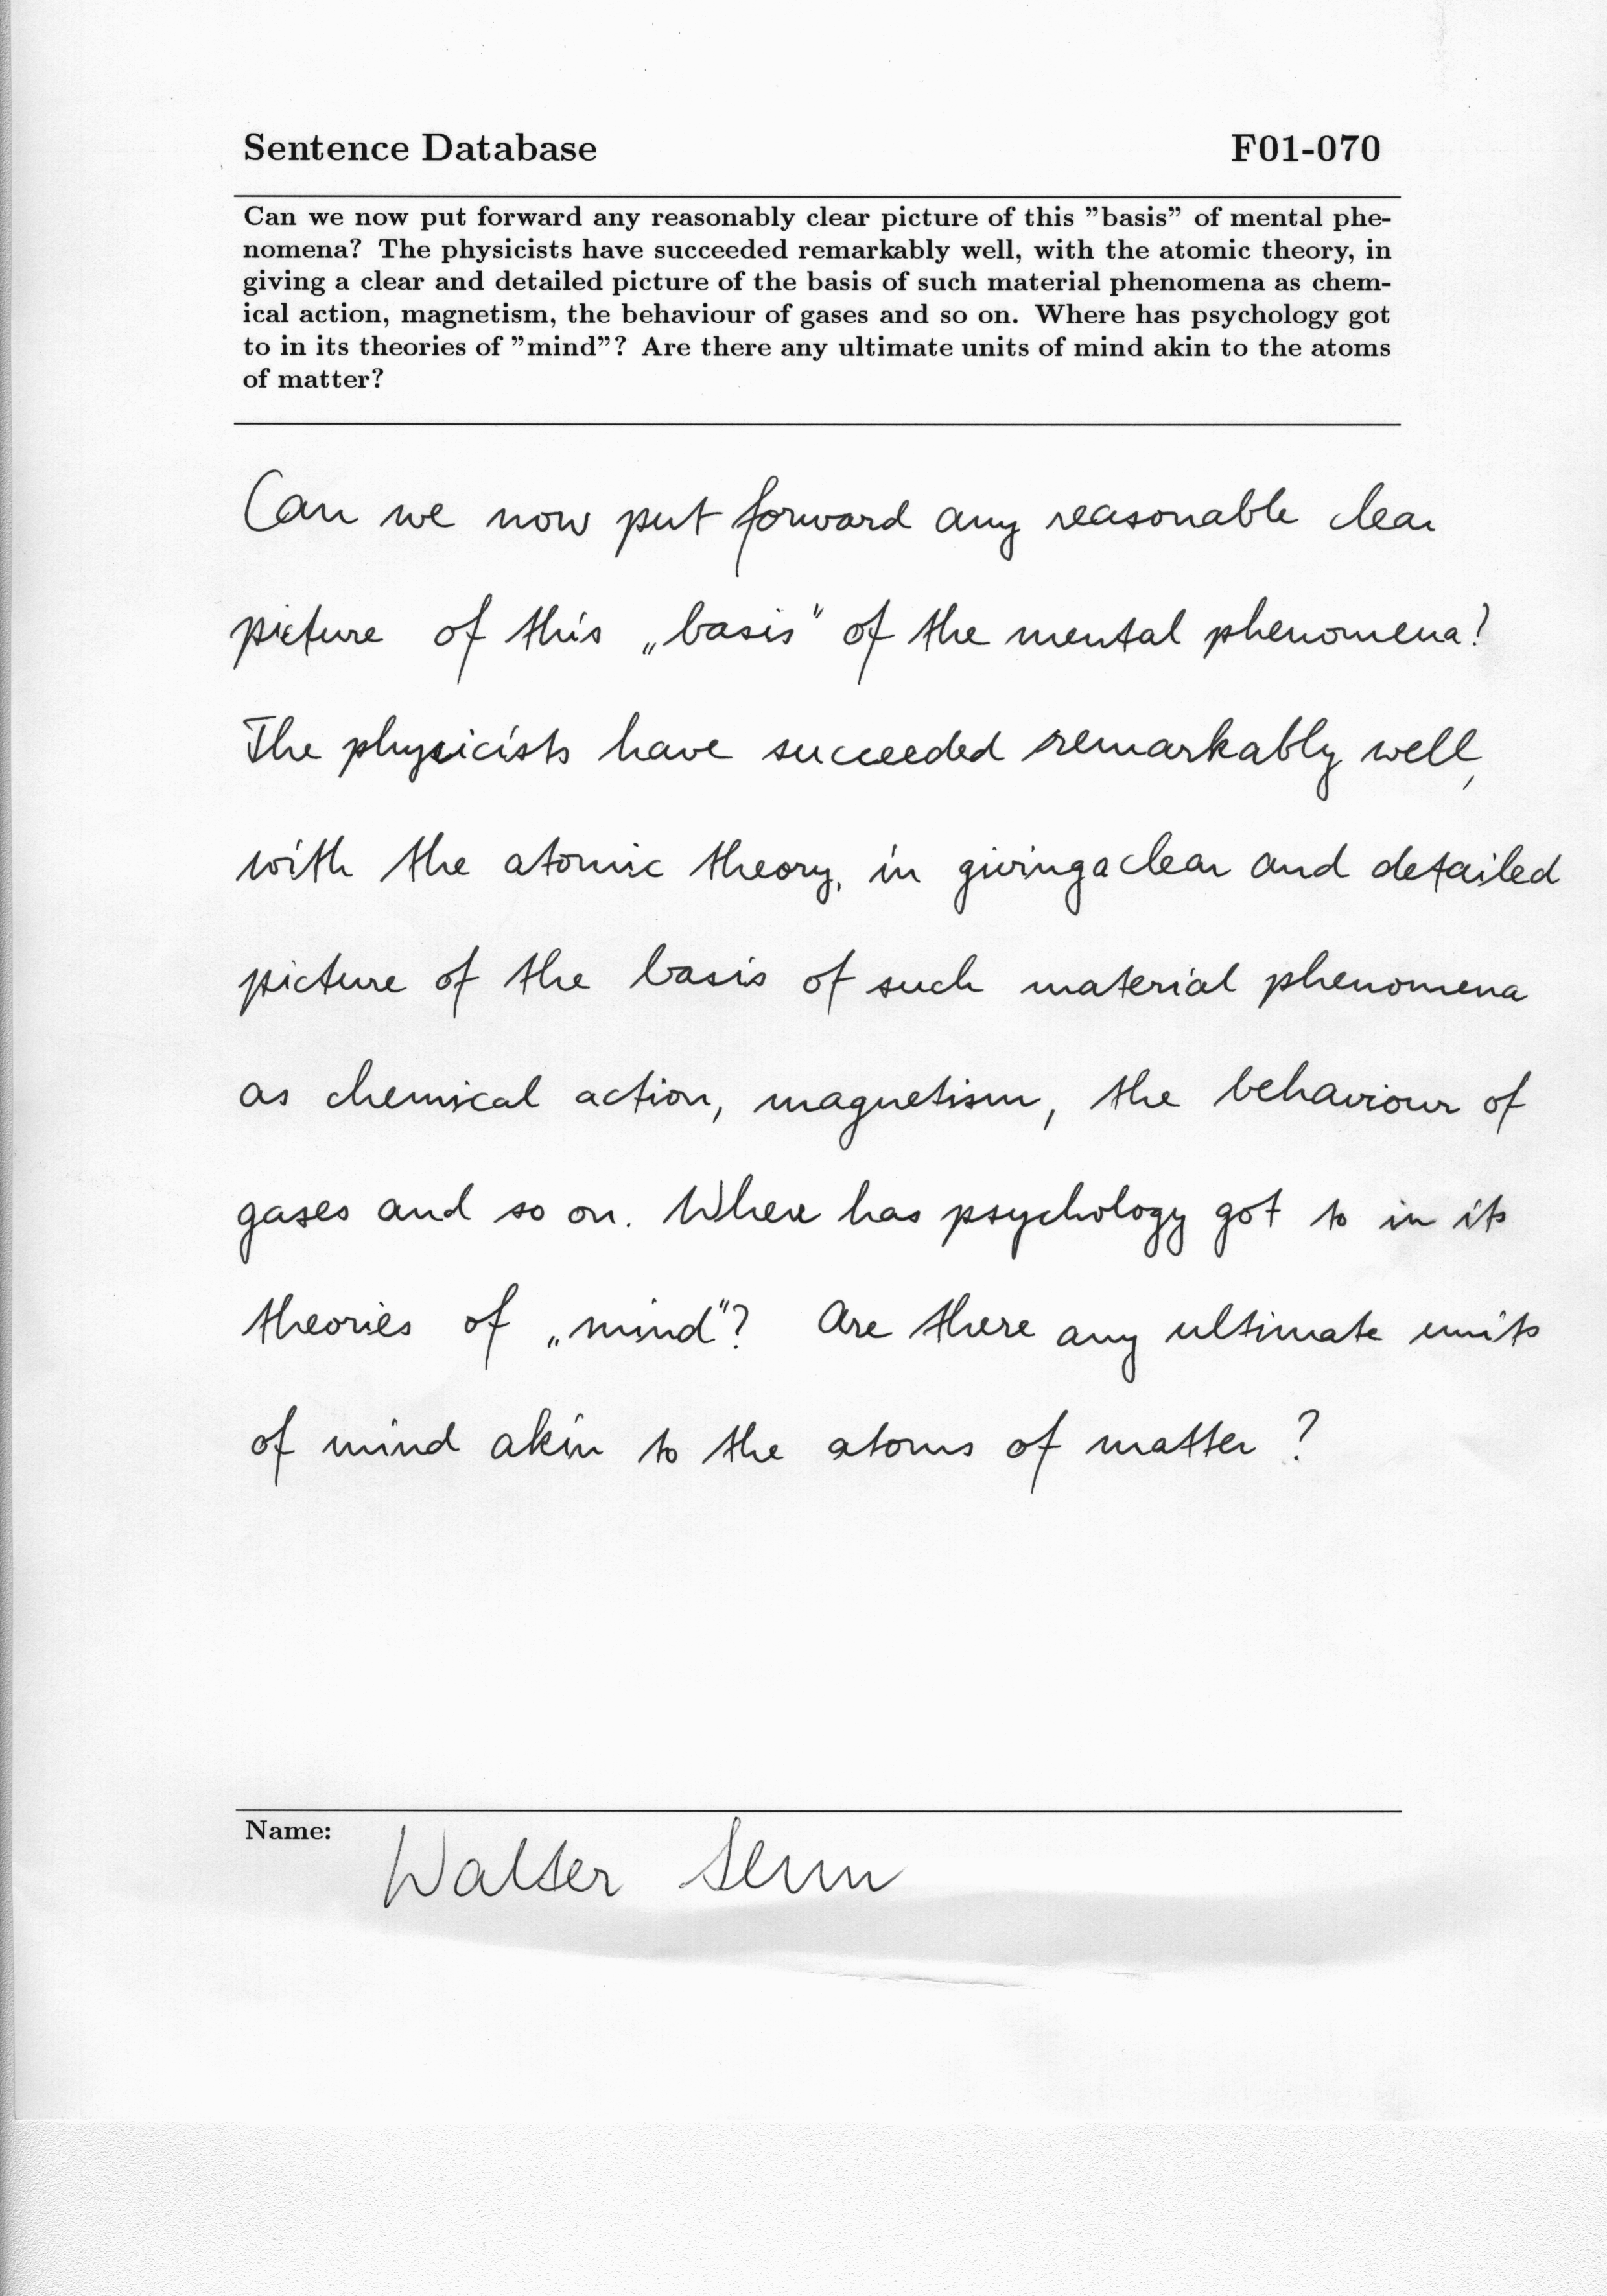 Sentence Database F01-070
Can we now put forward any reasonably clear picture of this ”basis” of mental phe-
nomena? The physicists have succeeded remarkably well, with the atomic theory, in
giving a clear and detailed picture of the basis of such material phenomena as chem-
ical action, magnetism, the behaviour of gases and so on. Where has psychology got
to in its theories of ”mind”? Are there any ultimate units of mind akin to the atoms
of matter?
Can we now put forward any reasonable clear
picture of this „basis“ of the mental phenomena?
The physicists have succeeded remarkably well,
with the atomic theory, in giving a clear and detailed
picture of the basis of such material phenomena
as chemical action, magnetism, the behaviour of
gases and so on. Where has psychology got to in its
theories of „mind“? Are there any ultimate units
of mind akin to the atoms of matter ?
Name: Walter Senn